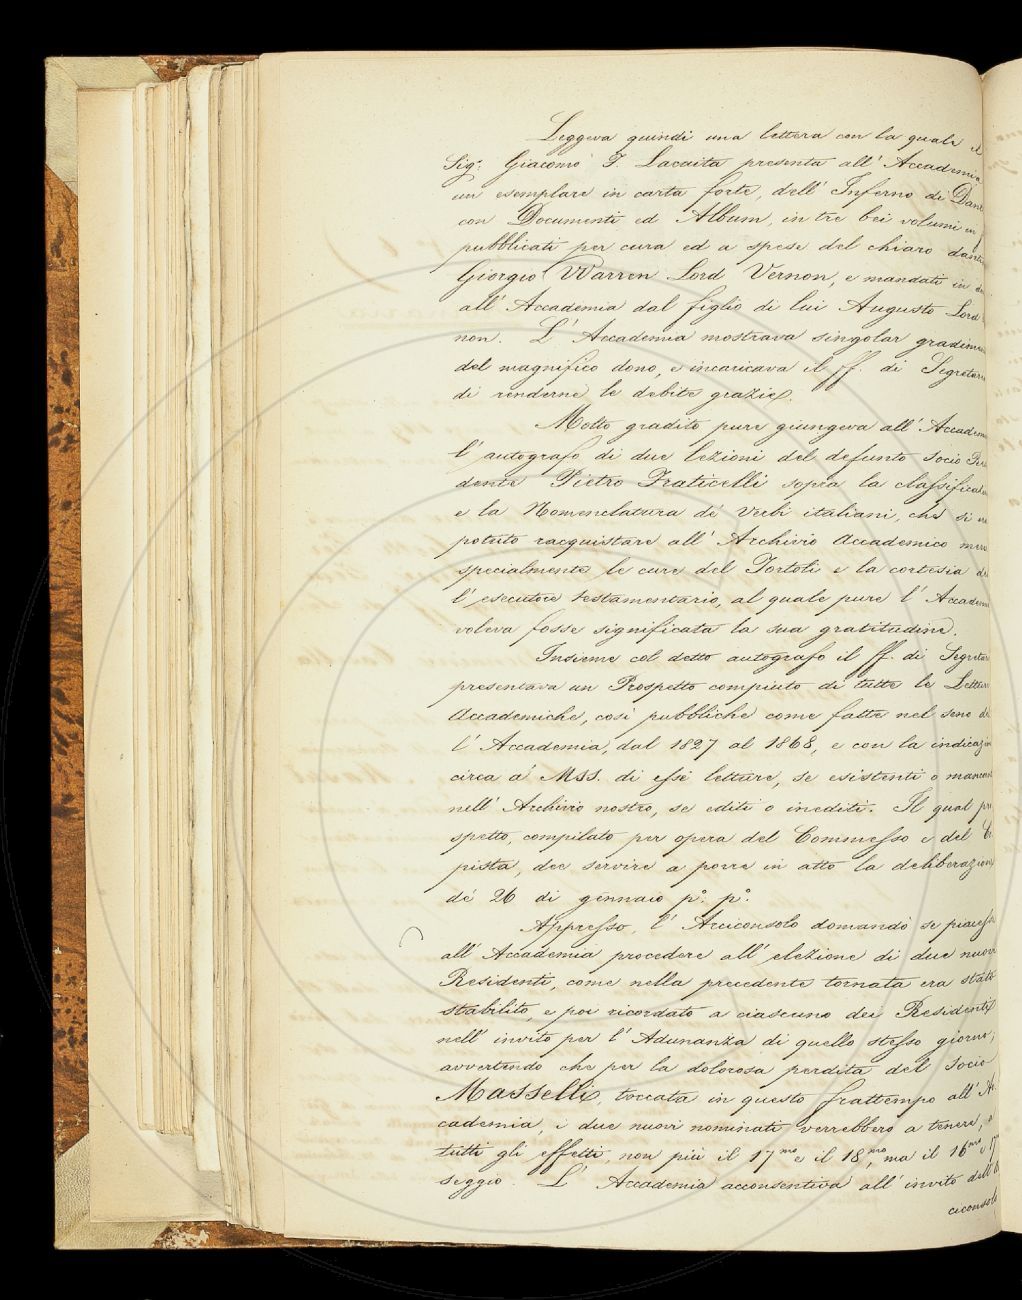 Leggeva quindi una lettera con la quale il
Sig.r Giacomo F. Lacaita presenta all'Accademia
un esemplare in carta forte, dell'Inferno di Dant
con Documenti ed Album, in tre bei volumi in f
pubblicati per cura ed a spese del chiaro dant
Giorgio Warren Lord Vernon, e mandati in d
all'Accademia dal figlio di lui Augusto Lord
non. L'Accademia mostrava singolar gradim
del magnifico dono, e incaricava il ff. di Segretar
di renderne le debite grazie.
Molto gradito pure giungeva all'Accadem
l'autografo di due lezioni del defunto socio Resi
dente Pietro Fraticelli sopra la classificaz
e la Nomenclatura de' Verbi italiani, che si
potuto racquistare all'Archivio Accademico merc
specialmente le cure del Tortoli e la cortesia de
l'esecutore testamentario, al quale pure l'Accadem
voleva fosse significata la sua gratitudine.
Insieme col detto autografo il ff. di Segretar
presentava un Prospetto compiuto di tutte le Lettur
Accademiche, così pubbliche come fatte nel seno de
l'Accademia, dal 1827 al 1868, e con la indicazio
circa a' Mss. di esse letture, se esistenti o mancan
nell'Archivio nostro, se editi o inediti. Il qual pr
spetto, compilato per opera del Commesso e del Co
pista, dee servire a porre in atto la deliberazione
de' 26 di gennaio p.o p.o
Appresso, l'Arciconsolo domandò se piacess
all'Accademia procedere all'elezione di due nuovi
Residenti, come nella precedente tornata era stato
stabilito, e poi ricordato a ciascuno dei Residenti
nell'invito per l'Adunanza di quello stesso giorno;
avvertendo che per la dolorosa perdita del Socio
Masselli, toccata in questo frattempo all'Ac
cademia, i due nuovi nominati verrebbero a tenere, a
tutti gli effetti, non più il 17mo e il 18mo, ma il 16mo e 17mo
seggio. L'Accademia acconsentiva all'invito dell'Ar
ciconsolo